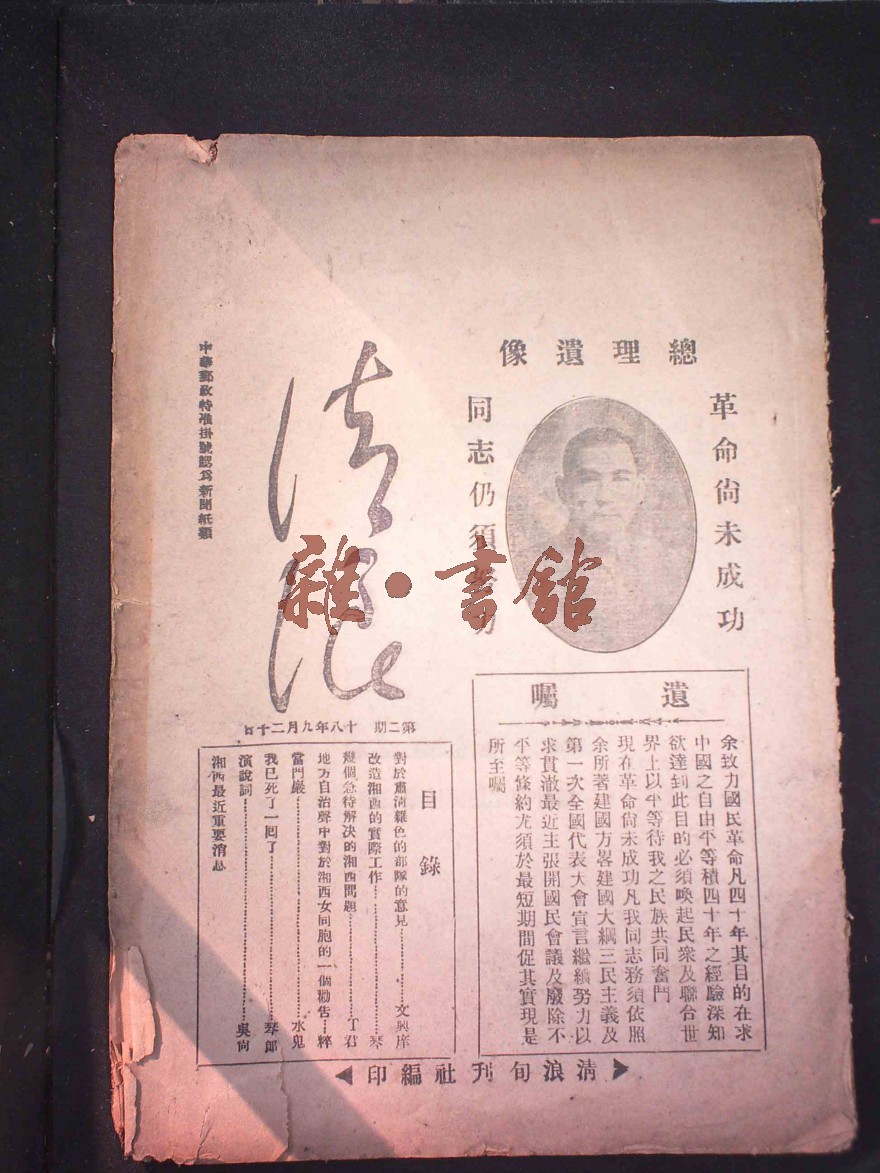 總理遺像
革命尙未成功
同志仍須努力
遺囑
余致力國民革命凡四十年其目的在求
中國之自由平等積四十年之經驗深知
欲達到此目的必須喚起民衆及聯合世
界上以平等待我之民族共同奮鬥
現在革命尙未成功凡我同志務須依照
余所著建國方畧建國大綱三民主義及
第一次全國代表大會宣言繼續努力以
求貫澈最近主張開國民會議及廢除不
平等條約尤須於最短期間促其實現是
所至囑
清浪
雜·書館
第二期 十八年九月二十日
目錄
對於肅淸雜色的部隊的意見………文興庠
改造湘西的實際工作………琴
幾個急待解决的湘西問題………丁君
地方自治聲中對於湘西女同胞的一個勸告…粹
當門嚴………水鬼
我已死了一回了………琴郎
演說詞………吳尙
湘西最近重要消息
中華郵政特准掛號認爲新聞紙類
清浪旬刊社編印